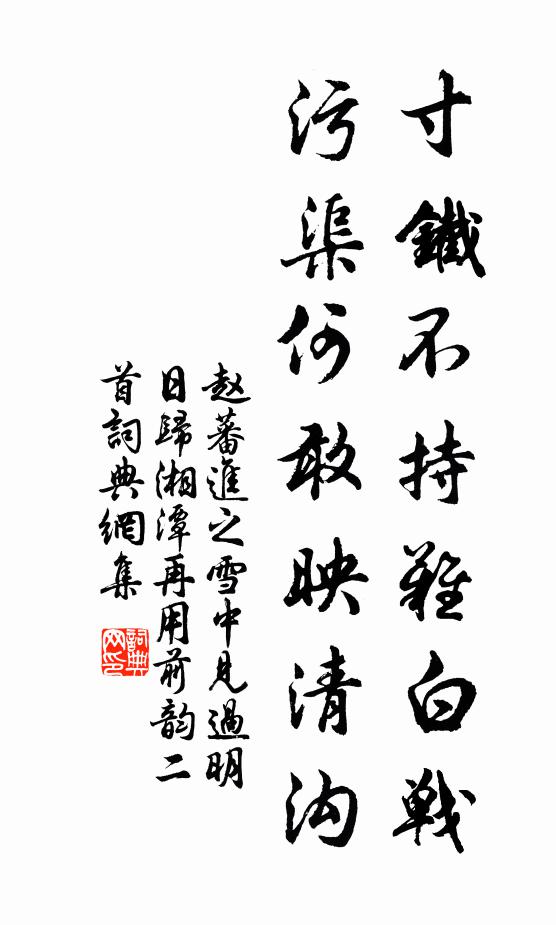 寸鐵不持難白戰
污渠何敢映清沟
赵蕃進之雪中見過明
日歸湘潭再用前韵二
首詞典網集
詞典网印